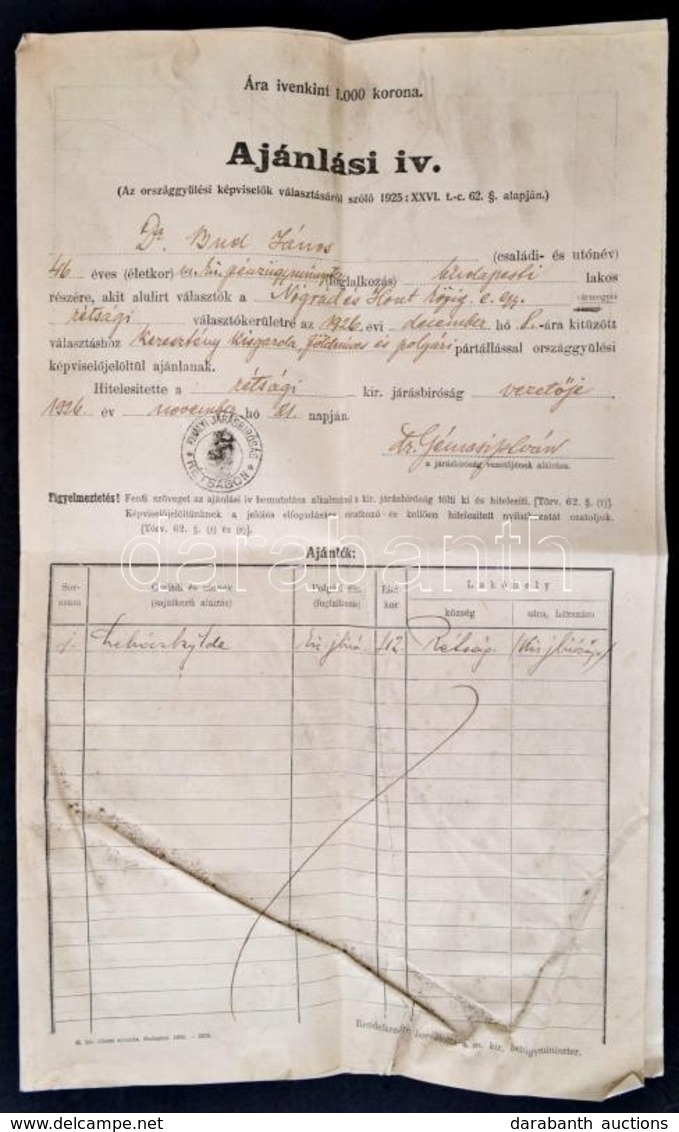 Ára ivenkint 1.000 korona.
Ajánlási iv.
(Az országgyülési képviselők választásáról szóló 1925 : XXVI. t.-c. 62. §. alapján.)
Dr. Bud János (családi- és utónév)
46 éves (életkor) m. kir. pénzügyminiszter (foglalkozás) budapesti lakos
részére, akit alulirt választók a Nógrád és Hont közig. e. egy. vármegyei
rétsági választókerületre az 1926. évi december hó 8.-ára kitüzött
választáshoz Keresztény kisgazda, földmives és polgári pártállással országgyülési
képviselőjelöltül ajánlanak.
Hitelesitette a rétsági kir. járásbiróság vezetője
1926. év november hó 21. napján.
KIRÁLYI JÁRÁSBIRÓSÁG RÉTSÁGON
a járásbiróság vezetőjének aláirása.
Figyelmeztetés! Fenti szöveget az ajánlási iv bemutatása alkalmával a kir. járásbiróság tölti ki és hitelesiti. [Törv. 62. §.
Képviselőjelöltünknek a jelölés elfogadására vonatkozó és kellően hitelesitett nyilatkozatát csatoljuk.
[Törv. 62. §.
Ajánlók:
Sor-szám Családi és utónév (sajátkezű aláirás) Polgári áll. (foglalkozás) Élet-kor Lakóhely
község utca, házszám
1. kir. jbiró. 42. Rétság.
Rendelkezésre bocsátotta a m. kir. belügyminiszter.
darabanth
© darabanth auctions
http://www.delcampe.net
darabanth auctions